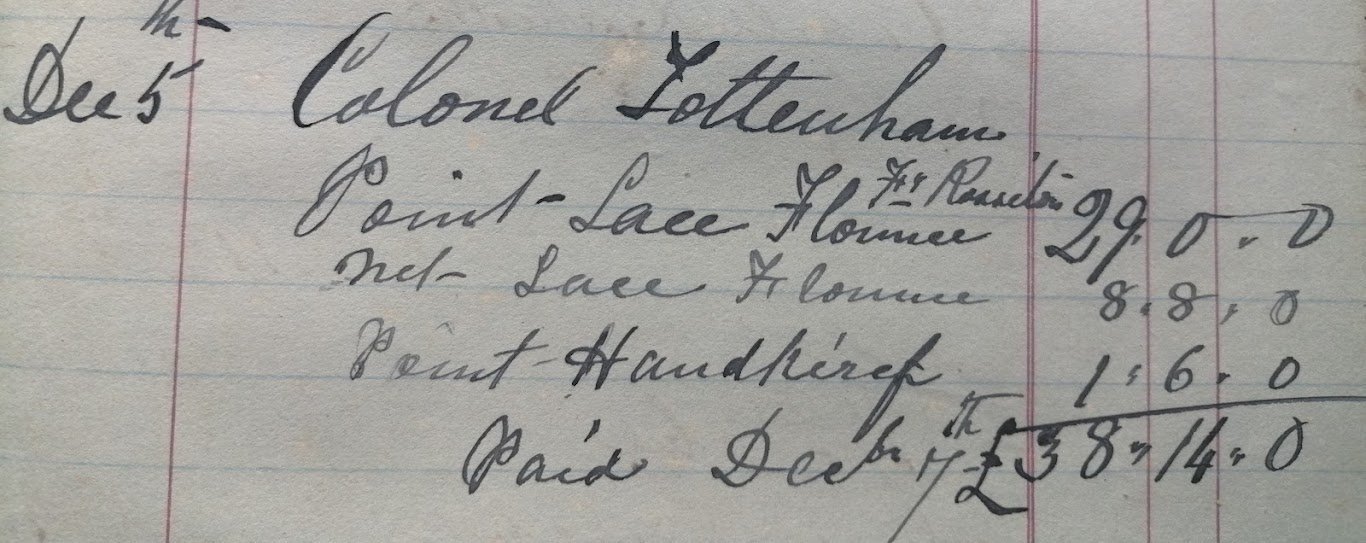 Dec 5th Colonel Tottenham
Point Lace Flounce 29 . 0 . 0
Net Lace Flounce 8 . 8 . 0
Point Handkircf 1 . 6 . 0
Paid Decbr 7th £38 " 14 " 0